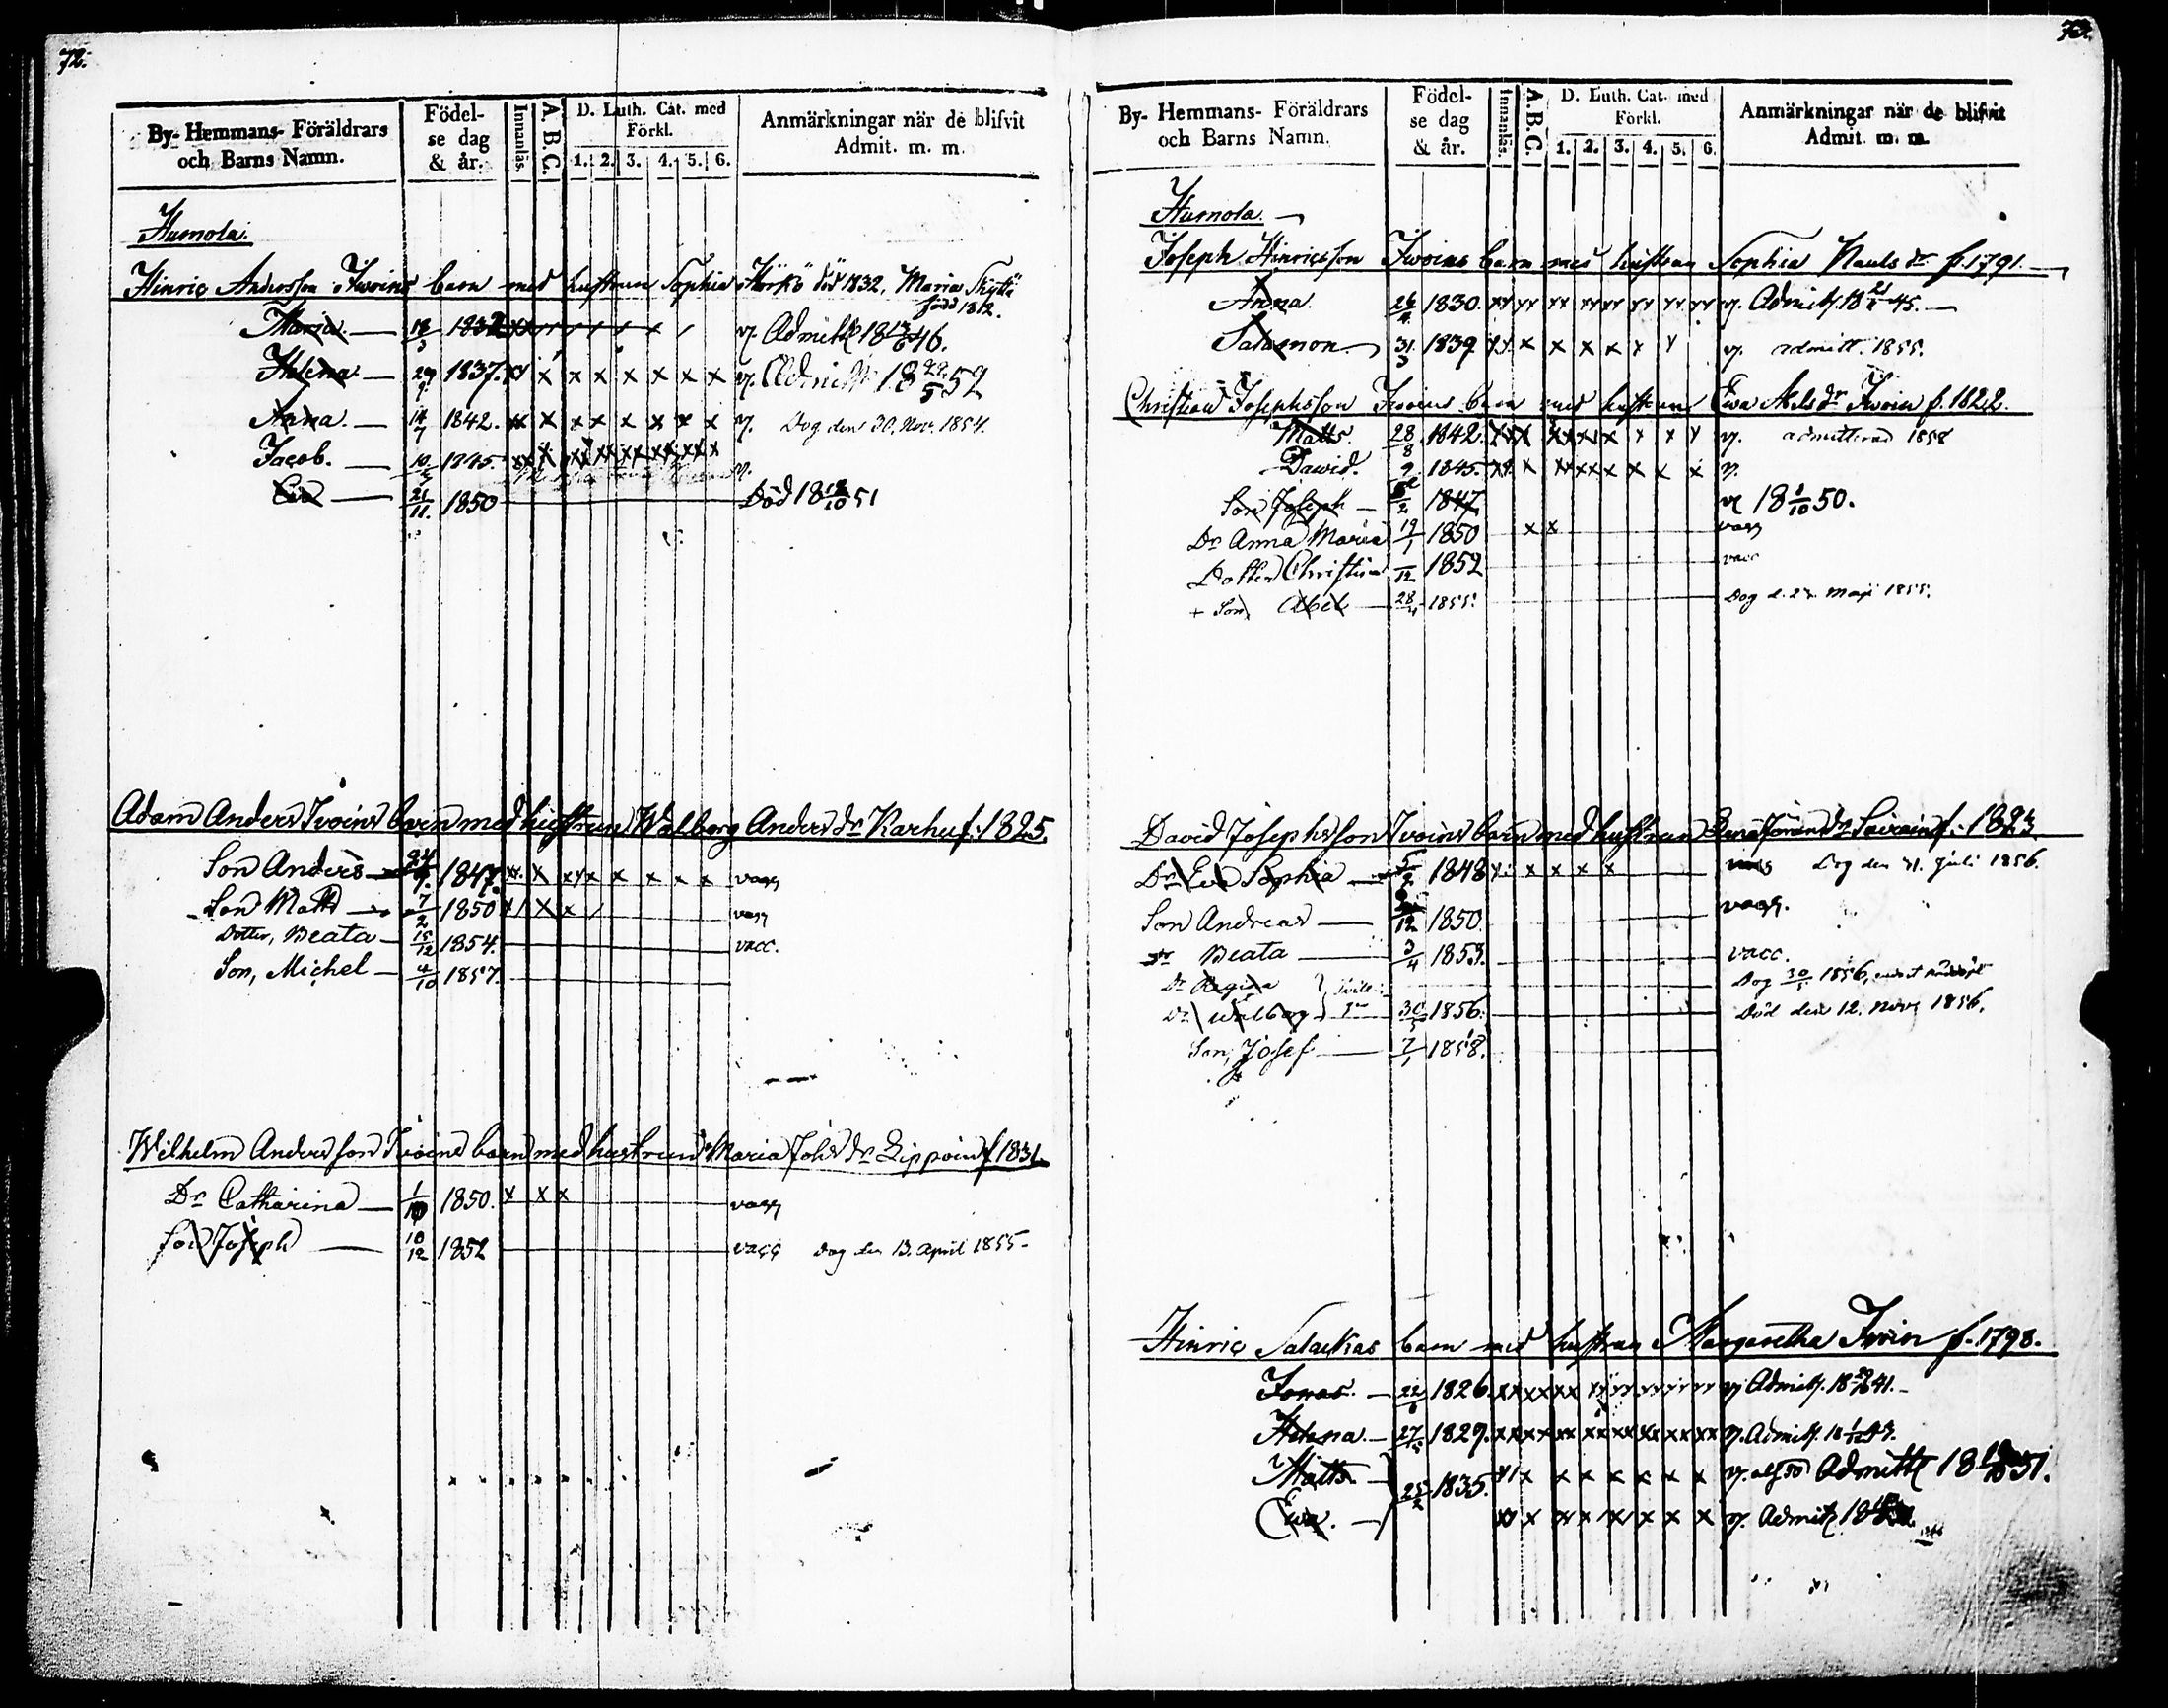 72.
By- Hemmans- Föräldrars och Barns Namn.
Födelse dag & år.
Innanläs.
A. B. C.
D. Luth. Cat. med Förkl.
1. 2. 3. 4. 5. 6.
Anmärkningar når de blifvit Admit. m. m.
Humola.
Hinric Andersson Iwoins barn med hustrun Sophia död 1832, Maria
född 1812.
Maria. 18/3 1832 v. Admitt 46.
Helena. 29/9 1837. v. Admitt 18 52
Anna. 14/7 1842. v. Dog den 30. Nov. 1854.
Jacob. 10/5 1845. v.
21/11. 1850 Död 18 18/10 51
Adam Anders Ivoins barn med hustrun Walborg Anders dr Karhu f. 1825.
Son Anders 1847. x x xx x x x x vacc
Son Matts 7/2 1850 vacc
Dotter, Beata 15/12 1854. vacc.
Son, Michel 4/10 1857.
Wilhelm Andersson Ivoins barn med hustrun Maria Johs dr f 1831.
Dr Catharina 1/10 1850. x x x vacc
Son Joseph 10/12 1852 vacc Dog den 13. April 1855.
73.
By- Hemmans- Föräldrars och Barns Namn.
Födelse dag & år.
Innanläs.
A. B. C.
D. Luth. Cat. med Förkl.
1. 2. 3. 4. 5. 6.
Anmärkningar når de blifvit Admit. m. m.
Humola.
Joseph Hinricsson Iwoins barn med hustrun Sophia Pauls dr f. 1791.
Anna. 1830. v. Admitt. 18 45.
Salomon. 31/3 1839 v. admitt. 1855.
Christian Josephsson Iwoins barn med hustrun Ewa dr Iwoin f. 1822.
Matts. 28/8 1842. v. admitterad 1858
Dawid. 1845. v.
Son Joseph 1847 18 1/10 50.
Dr Anna Maria 19/1 1850 x x vacc
Dotter Christina /12 1852 vacc
+ Son Abel 28/4 1855. Dog d. 27. Maji 1855.
David Josephsson Ivoins barn med hustrun dr f. 1823.
Dr Eva Sophia 5/2 1848 x x x x Dog den 31. Juli 1856.
Son Andreas /12 1850. vacc.
dr Beata 3/4 1853. vacc.
Dr Regina Dog 30/5 1856,
Dr Walborg 30/5 1856. Död den 12. Nov. 1856.
Son, Josef 7/1 1858.
Hinric barn med hustrun Margaretha Iwoin f. 1798.
Jonas. 22/6 1826. v. Admitt. 18 41.
Helena. 1829. v. Admitt. 18 43.
Matts. 25/2 1835. v. Admitt 18 51.
Ewa. v. Admitt